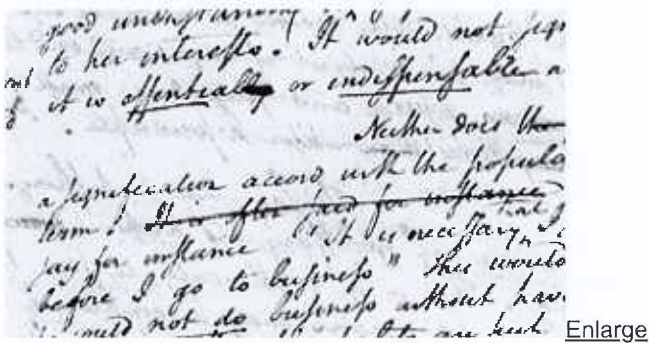 good understanding
to her interests. It would not sign
it is essentially or indispensable a
Neither does the
a signification accord with the popula
term. It is often said for instance
say for instance "It is necessary, that
before I go to business" this would
could not do business without hav
Enlarge